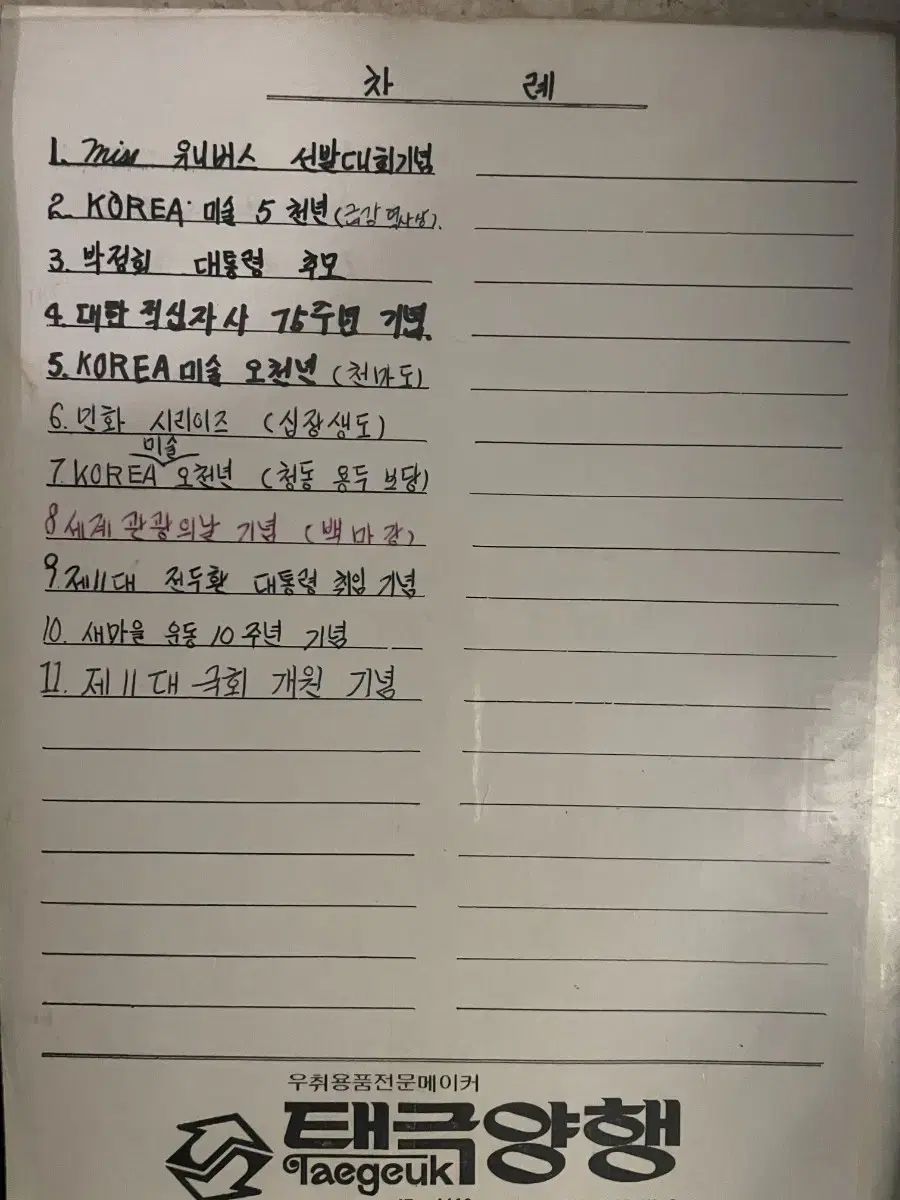 차 례
1. Miss 유니버스 선발대회기념
2. KOREA 미술 5천년
3. 박정희 대통령 추모
4. 대한 적십자사 75주년 기념.
5. KOREA 미술 오천년 (천마도)
6. 민화 시리이즈 (십장생도)
미술
7. KOREA 오천년 (청동 용두 보당)
8 세계 관광의날 기념 (백마강)
9. 제11대 전두환 대통령 취임 기념
10. 새마을 운동 10주년 기념
11. 제11대 국회 개원 기념
우취용품전문메이커
태극양행
Taegeuk